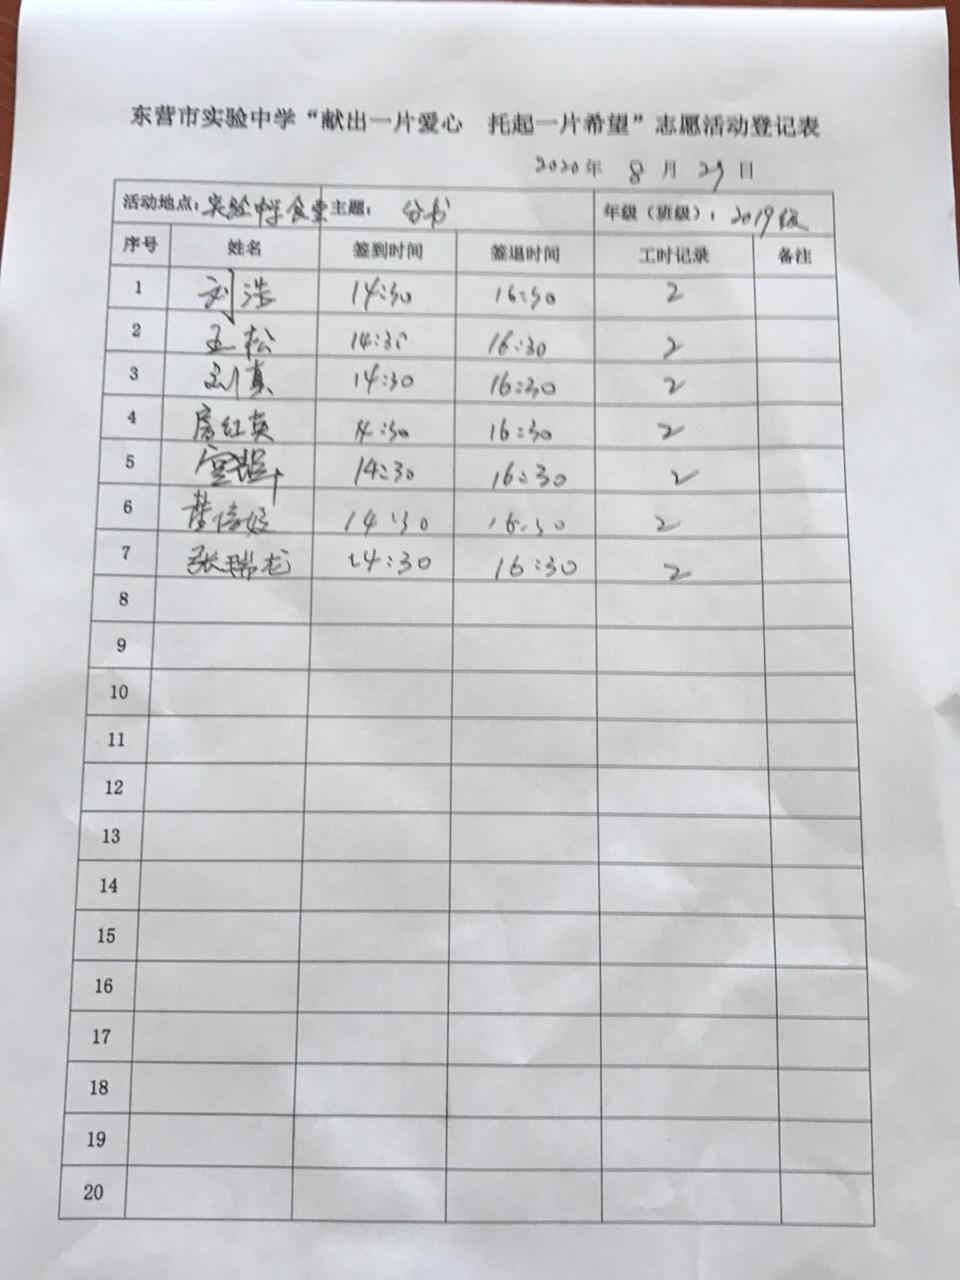 东营市实验中学“献出一片爱心 托起一片希望”志愿活动登记表
2020年 8 月 29 日
活动地点：实验中学食堂 主题： 分书 年级（班级）：2019级
序号 姓名 签到时间 签退时间 工时记录 备注
1 刘浩 14:30 16:30 2
2 王松 14:30 16:30 2
3 刘真 14:30 16:30 2
4 房红英 14:30 16:30 2
5 14:30 16:30 2
6 14:30 16:30 2
7 张瑞龙 14:30 16:30 2
8
9
10
11
12
13
14
15
16
17
18
19
20